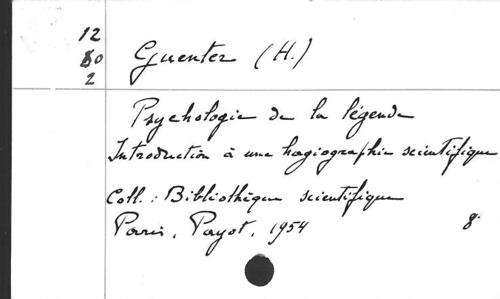 12
80
2
Guenter (H.)
Psychologie de la légende
Introduction à une hagiographie scientifique
Coll. : Bibliothèque scientifique
Paris, Payot, 1954 8°